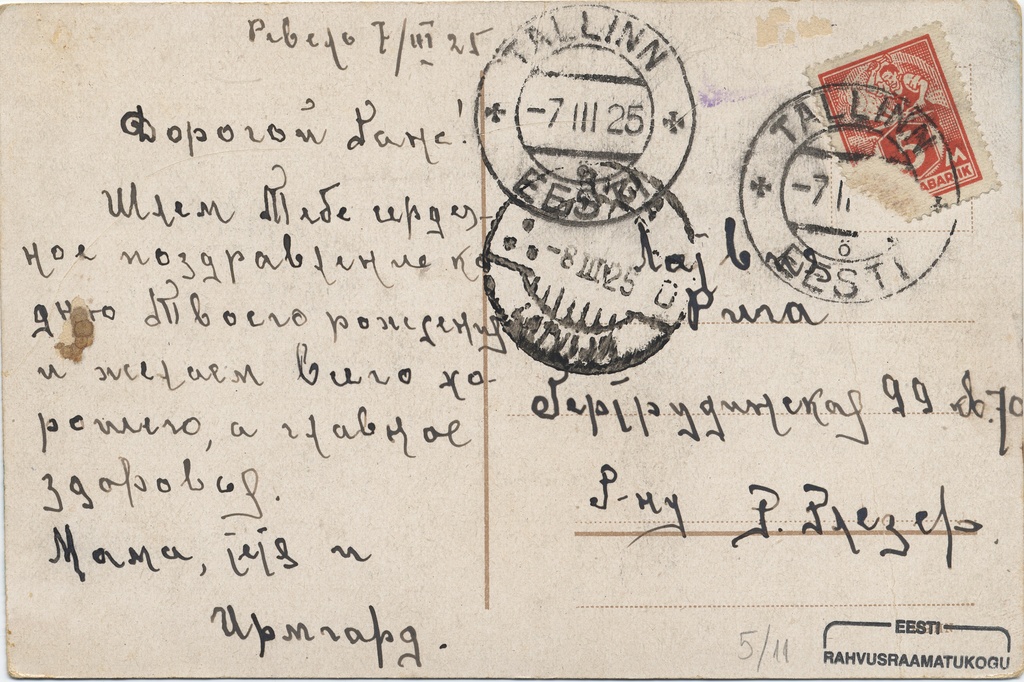 Ревель 7/III 25
Дорогой Ганс!
Шлем Тебе сердеч-
ное поздравление ко
дню Твоего рождения
и желаем всего хо-
рошего, а главное
здоровья.
Мама, и
Ирмгард.
TALLINN
-7 III 25
EESTI
-8 III 25
LATVIJA
TALLINN
-7 I
EESTI
5 M
Рига
Гертрудинская 99 кв. 70
Г-ну Г.
5/11
EESTI
RAHVUSRAAMATUKOGU